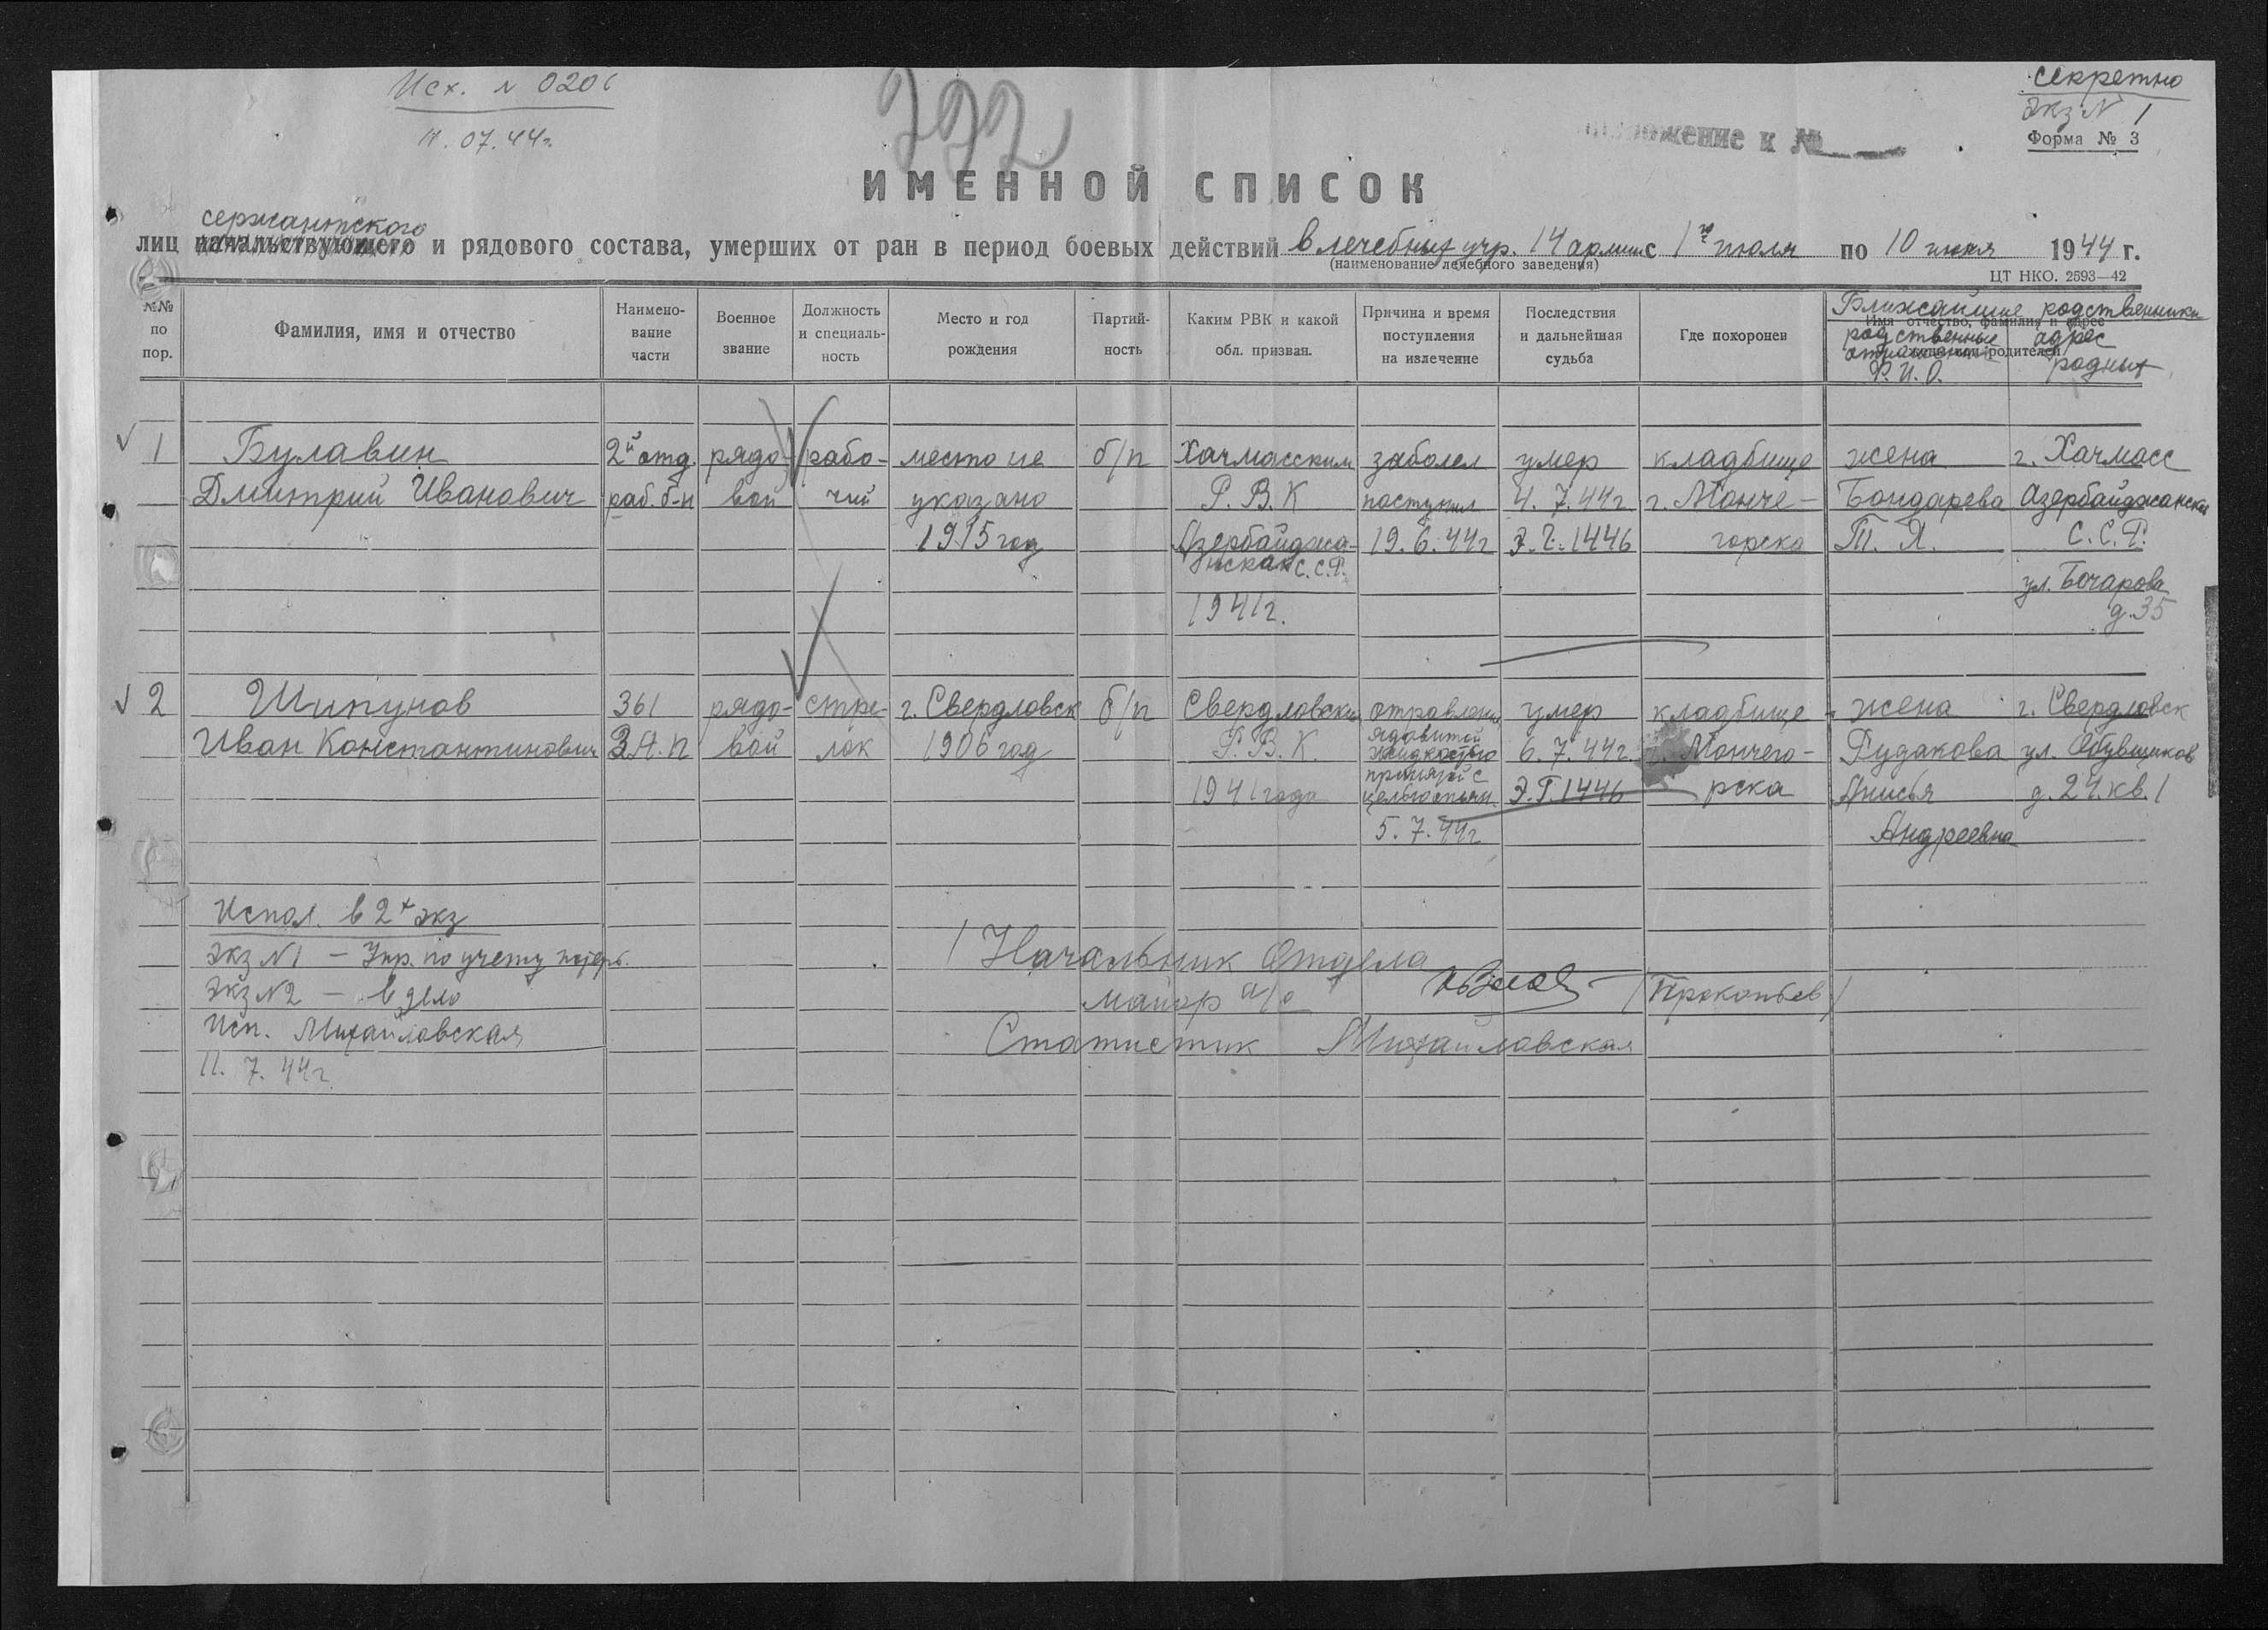 Исх. № 0206
11.07.44г.
секретно
экз № 1
Форма № 3
ожение к №
ИМЕННОЙ СПИСОК
сержантского
лиц начальствующего и рядового состава, умерших от ран в период боевых действий в лечебных учр. 14 армии с 1го июля по 10 июля 1944 г.
(наименование лечебного заведения)
ЦТ НКО. 2593—42
№№ по пор.
Фамилия, имя и отчество
Наимено-
вание
части
Военное
звание
Должность
и специаль-
ность
Место и год
рождения
Партий-
ность
Каким РВК и какой
обл. призван.
Причина и время
поступления
на излечение
Последствия
и дальнейшая
судьба
Где похоронен
Ближайшие родственники
Имя отчество, фамилия и адрес
родственные адрес
родителей
Ф.И.О. родных
1 Булавин 2й отд. рядо- рабо- место не б/п Хачмасским заболел умер кладбище жена г. Хачмасс
Дмитрий Иванович раб. б-н вой чий указано Р.В.К поступил 4.7.44г г. Монче- Бондарева Азербайджанская
1915 год Азербайджа- 19.6.44г 1446 горска Т. Я. С.С.Р.
нская С.С.Р. ул. Бочарова
1941г. д.35
2 Шипунов 361 рядо- стре- г. Свердловск б/п Свердловским отравление умер кладбище жена г. Свердловск
Иван Константинович З.А.П вой лок 1906 год Р.В.К. ядовитой 6.7.44г. г. Мончего- Рудакова ул. Обувщиков
жидкостью
принятой с
1941 года целью опьян. Э.Г.1446 рска Анисья д.24.кв.1
5.7.44г Андреевна
Испол. в 2х экз
экз №1 — Упр. по учету потерь.
Экз №2 — в дело
Исп. Михайловская
11.7.44г.
Начальник Отдела
майор а/с /Прокопьев/
Статистик Михайловская